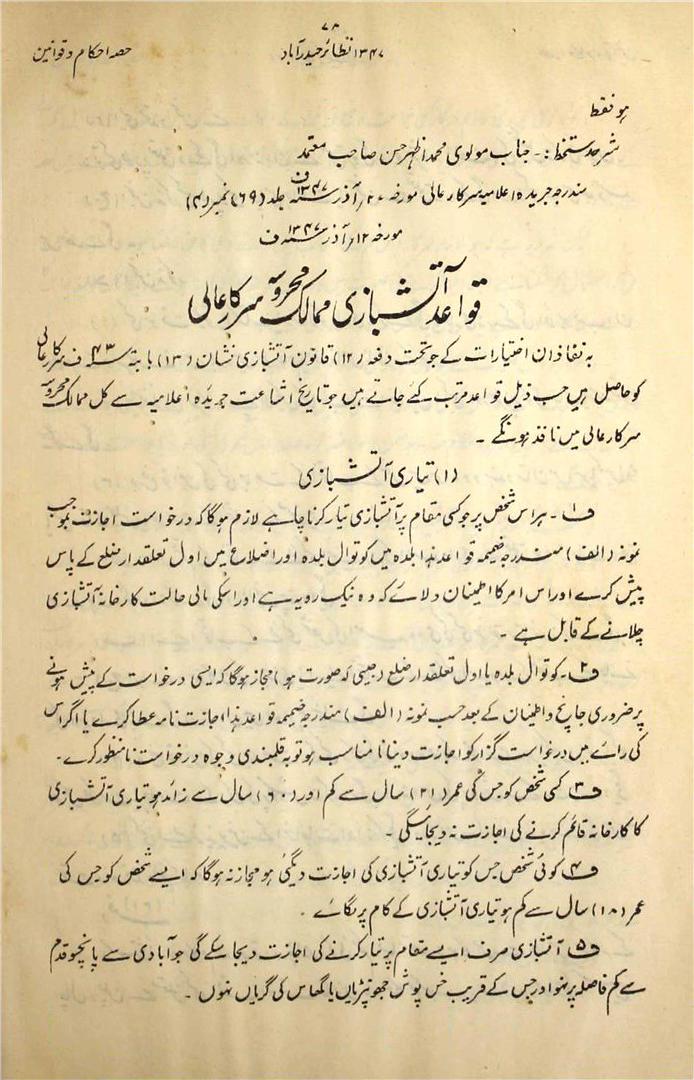 ۷۸
حصہ احکام و قوانین
۱۳۴۷ نظائر حیدرآباد
ہو فقط
شرحدستخط :۔ جناب مولوی محمد اظہر حسن صاحب معتمد
مندرجہ جریدہ اعلامیہ سرکار عالی مورخہ ۲۷؍ آذر ۱۳۴۷ ف جلد (۶۹) نمبر (۴)
مورخہ ۱۲؍ آذر ۱۳۴۷ ف
قواعد آتشبازی ممالک محروسہ سرکار عالی
بہ نفاذ ان اختیارات کے جو تحت دفعہ (۱۲) قانون آتشبازی نشان (۱۳) بابتہ ۴۳ ف سرکار عالی
کو حاصل ہیں حسب ذیل قواعد مرتب کئے جاتے ہیں جو تاریخ اشاعت جریدہ اعلامیہ سے کل ممالک محروسہ
سرکار عالی میں نافذ ہونگے ۔
(۱) تیاری آتشبازی
ف۱ ۔ ہر اس شخص پر جو کسی مقام پر آتشبازی تیار کرنا چاہے لازم ہوگا کہ درخواست اجازت بموجب
نمونہ (الف) مندرجہ ضمیمہ قواعد ہذا بلدہ میں کوتوال بلدہ اور اضلاع میں اول تعلقدار ضلع کے پاس
پیش کرے اور اس امر کا اطمینان دلائے کہ وہ نیک رویہ ہے اور اسکی مالی حالت کارخانہ آتشبازی
چلانے کے قابل ہے ۔
ف۲ ۔ کوتوال بلدہ یا اول تعلقدار ضلع (جیسی کہ صورت ہو) مجاز ہوگا کہ ایسی درخواست کے پیش ہونے
پر ضروری جانچ و اطمینان کے بعد حسب نمونہ (الف) مندرجہ ضمیمہ قواعد ہذا اجازت نامہ عطا کرے یا اگر اس
کی رائے میں درخواست گزار کو اجازت دینا نا مناسب ہو تو بہ قلمبندی وجوہ درخواست نامنظور کرے ۔
ف۳ کسی شخص کو جس کی عمر (۲۱) سال سے کم اور (۶۰) سال سے زائد ہو تیاری آتشبازی
کا کارخانہ قائم کرنے کی اجازت نہ دیجائیگی ۔
ف۴ کوئی شخص جس کو تیاری آتشبازی کی اجازت دیگئی ہو مجاز نہ ہوگا کہ ایسے شخص کو جس کی
عمر (۱۸) سال سے کم ہو تیاری آتشبازی کے کام پر لگائے ۔
ف۵ آتشبازی صرف ایسے مقام پر تیار کرنے کی اجازت دیجا سکے گی جو آبادی سے پانچسو قدم
سے کم فاصلہ پر نہو اور جس کے قریب خس پوش جھونپڑیاں یا گھاس کی گریاں نہوں ۔